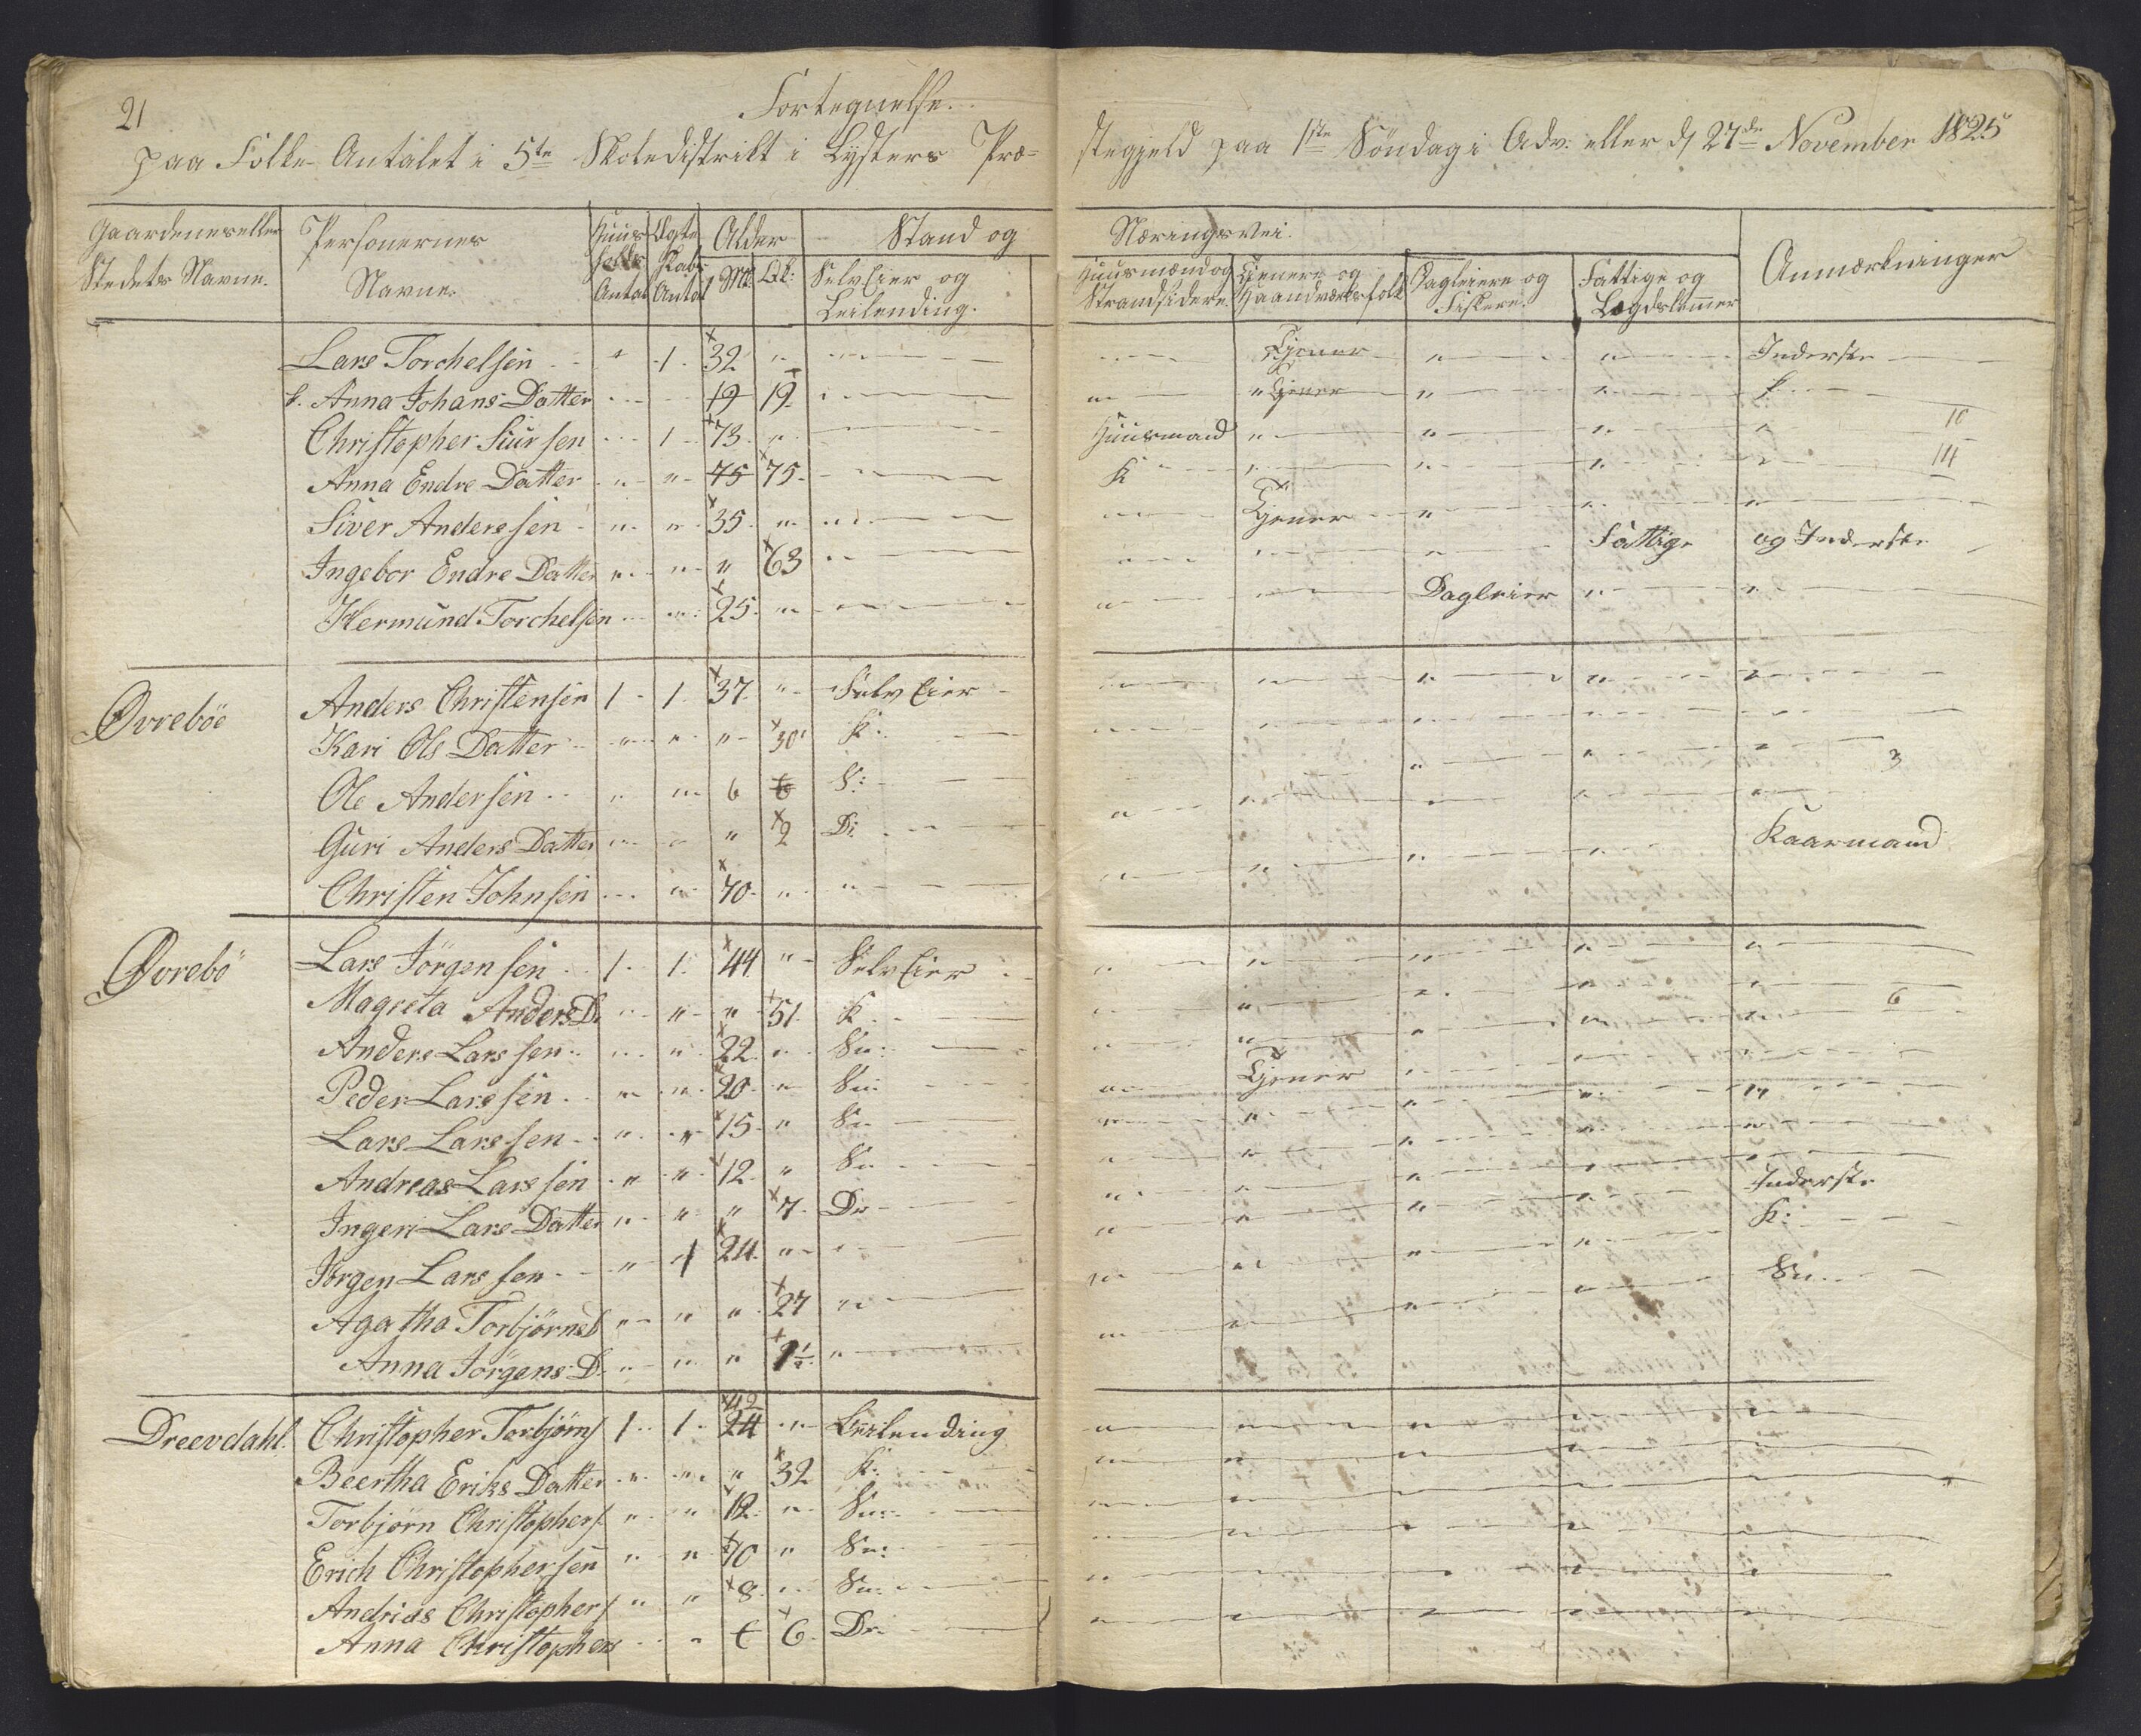 21
Fortegnelse
paa Folke-Antalet i 5te Skoledistrikt i Lysters Præ= stegjeld paa 1ste Söndag i Adv: eller d/ 27de November 1825
Gaardenes eller Stedets Navne. Personernes Navne. Huus holds Antal Ægte skabs Antal Alder Mk: Qk: Stand og Næringsvei. SelvEier og Leilending. Huusmænd og Strandsidere Tjenere og Haandværksfolk Dagleiere og Fiskere. Fattige og Lægdslemmer Anmærkninger
Lars Torchelsen 1 32 Tjener Inderste
k. Anna Johans Datter 19 19 Tjener k
Christopher Siursen 1 73 Huusmand 10
Anna Endre Datter 75 75 K 14
Siver Anderssen 35 Tjener
Ingebor Endre Datter 63 Fattige og Inderste
Hermund Torchelsen 25 Dagleier
Övreböe Anders Christensen 1 1 37 SelvEier
Kari Ols Datter 30 K:
Ole Andersen 6 6 S: 3
Guri Anders Datter 2 D:
Christen Johnsen 70 Kaarmand
Övrebö Lars Jörgensen 1 1 44 SelvEier
Magreta Anders D. 51 K 6
Anders Larssen 22 Sn:
Peder Larssen 20 Sn: Tjener
Lars Larssen 15 Sn
Andreas Larssen 12 Sn
Ingeri Lars Datter 7 Dr
Jörgen Larssen 1 24 Inderste
Agatha Torbjörnsd 27 K:
Anna Jörgens D. 1½ Sn.
Dreevdahl. Christopher Torbjörns/ 1 1 42 24 Leilending
Beertha Eriks Datter 32 K:
Torbjörn Christophers/ 12 Sn:
Erich Christophersen 10 Sn:
Andrias Christophers/ 8 Sn:
Anna Christophers 6 6 Dr.